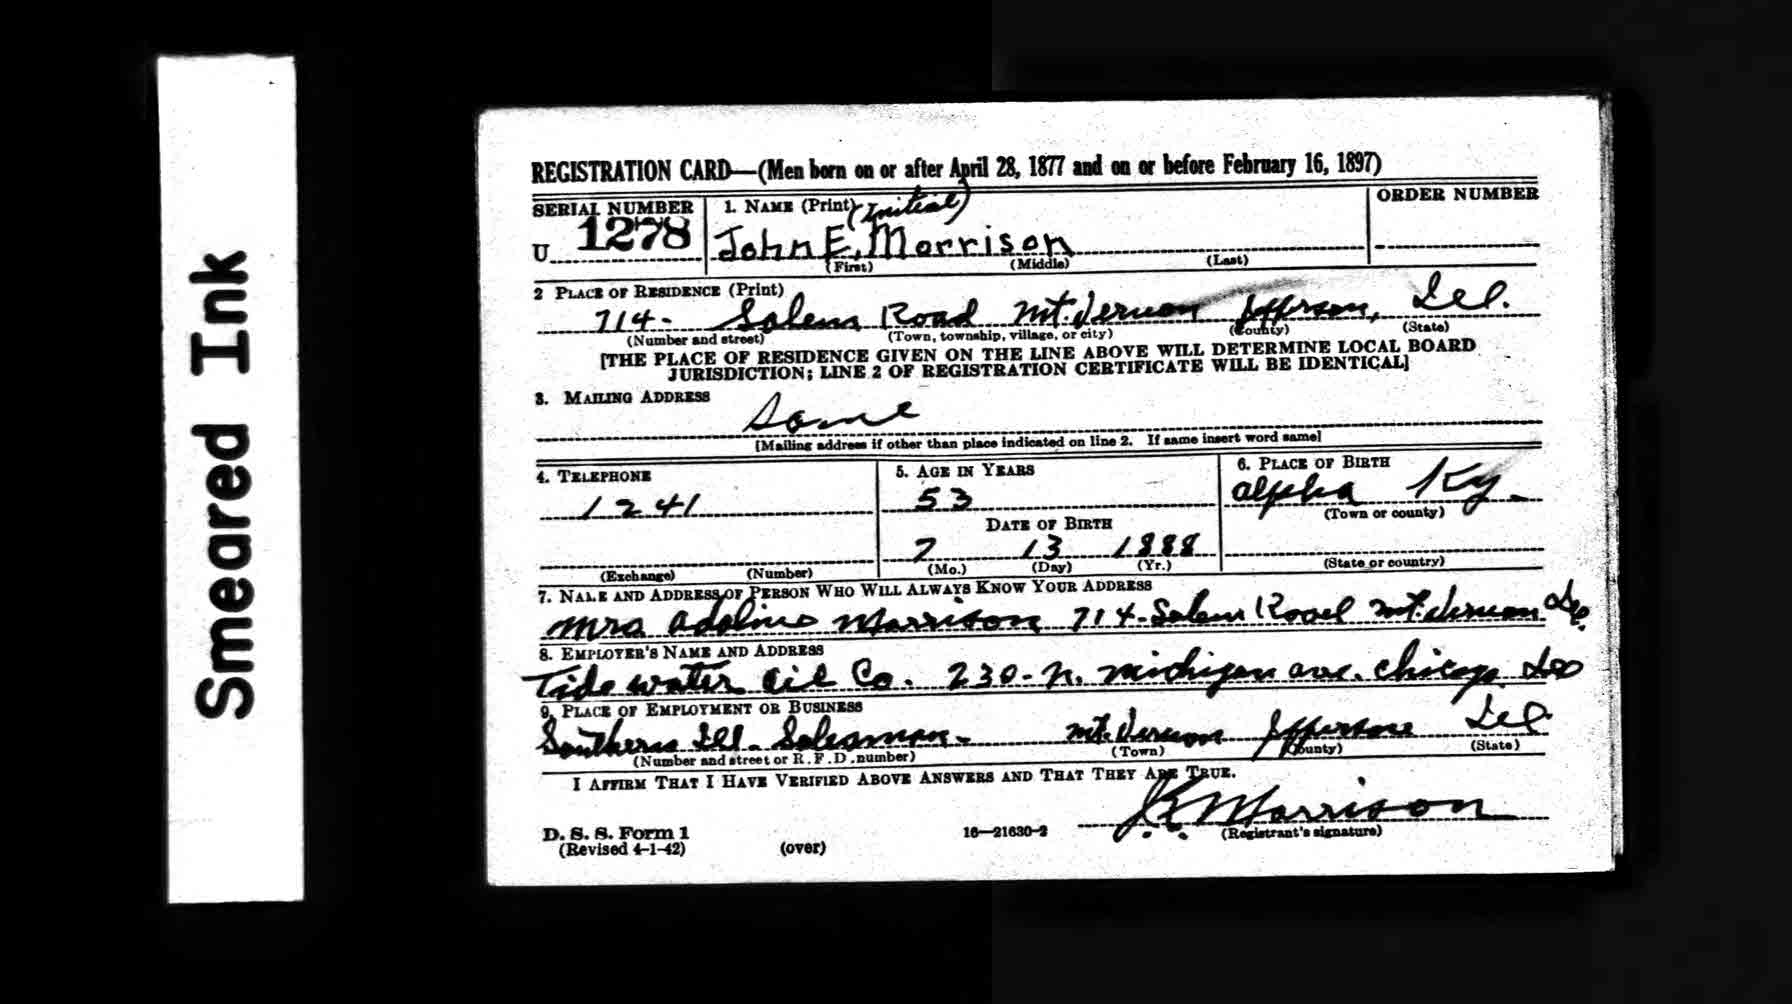 Smeared Ink
REGISTRATION CARD—(Men born on or after April 28, 1877 and on or before February 16, 1897)
SERIAL NUMBER 1. NAME (Print) (initial) ORDER NUMBER
U 1278 John E. Morrison
(First) (Middle) (Last)
2 PLACE OF RESIDENCE (Print)
714- Salem Road Mt. Vernon Jefferson, Ill.
(Number and street) (Town, township, village, or city) (County) (State)
[THE PLACE OF RESIDENCE GIVEN ON THE LINE ABOVE WILL DETERMINE LOCAL BOARD
JURISDICTION; LINE 2 OF REGISTRATION CERTIFICATE WILL BE IDENTICAL]
3. MAILING ADDRESS
Same
[Mailing address if other than place indicated on line 2. If same insert word same]
4. TELEPHONE 5. AGE IN YEARS 6. PLACE OF BIRTH
1241 53 Alpha Ky.
(Town or county)
DATE OF BIRTH
7 13 1888
(Exchange) (Number) (Mo.) (Day) (Yr.) (State or country)
7. NAME AND ADDRESS OF PERSON WHO WILL ALWAYS KNOW YOUR ADDRESS
Mrs Morrison 714-Salem Road Mt. Vernon Ill.
8. EMPLOYER'S NAME AND ADDRESS
Tide water Oil Co. 230-N. Michigan ave. Chicago Ill
9. PLACE OF EMPLOYMENT OR BUSINESS
Southern Ill. Salesman- Mt. Vernon Jefferson Ill.
(Number and street or R.F.D. number) (Town) (County) (State)
I AFFIRM THAT I HAVE VERIFIED ABOVE ANSWERS AND THAT THEY ARE TRUE.
J.E. Morrison
D. S. S. Form 1 16—21630-2 (Registrant's signature)
(Revised 4-1-42) (over)